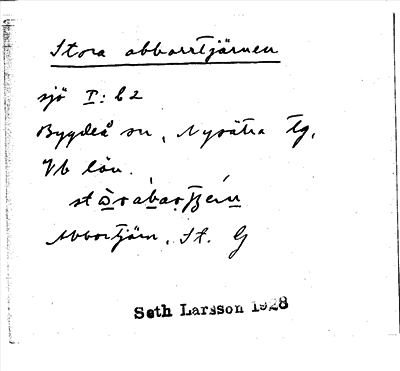 Stora abborrtjärnen
sjö I: b2
Bygdeå sn, Nysätra tg,
Vb län.
Abbortjärn, St. G
Seth Larsson 1928